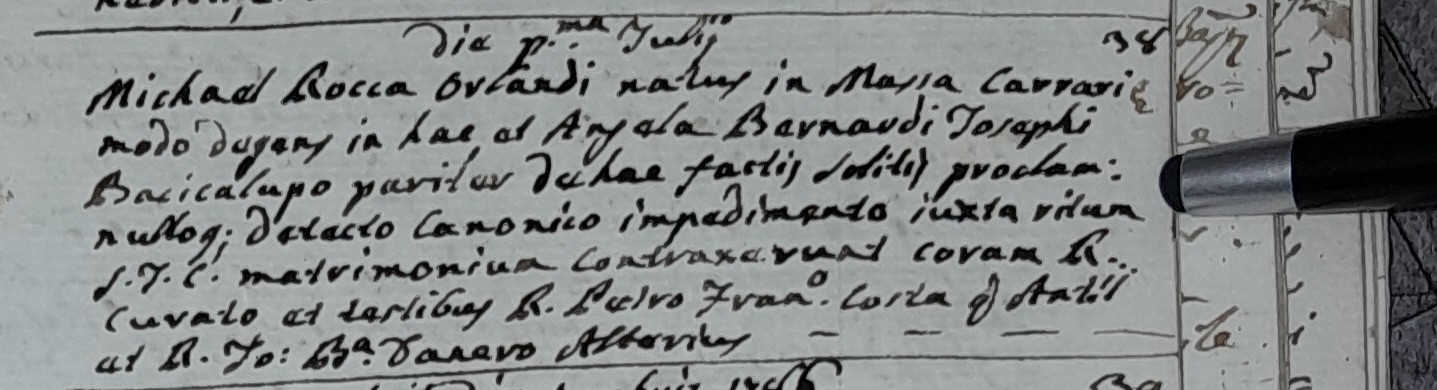 Die p.ma Julij 38
Michael Rocca Orlandi natus in Massa Carrariæ
modo degens in hac et Angela Bernardi Josephi
Bacicalupo pariter de hac factis solitis proclam:
nulloq; detecto Canonico impedimento iuxta ritum
S. J. C. matrimonium contraxerunt coram R.
Curato et testibus R. Petro Fran.o Costa q
et R. Jo: Ba. Danero Alterius